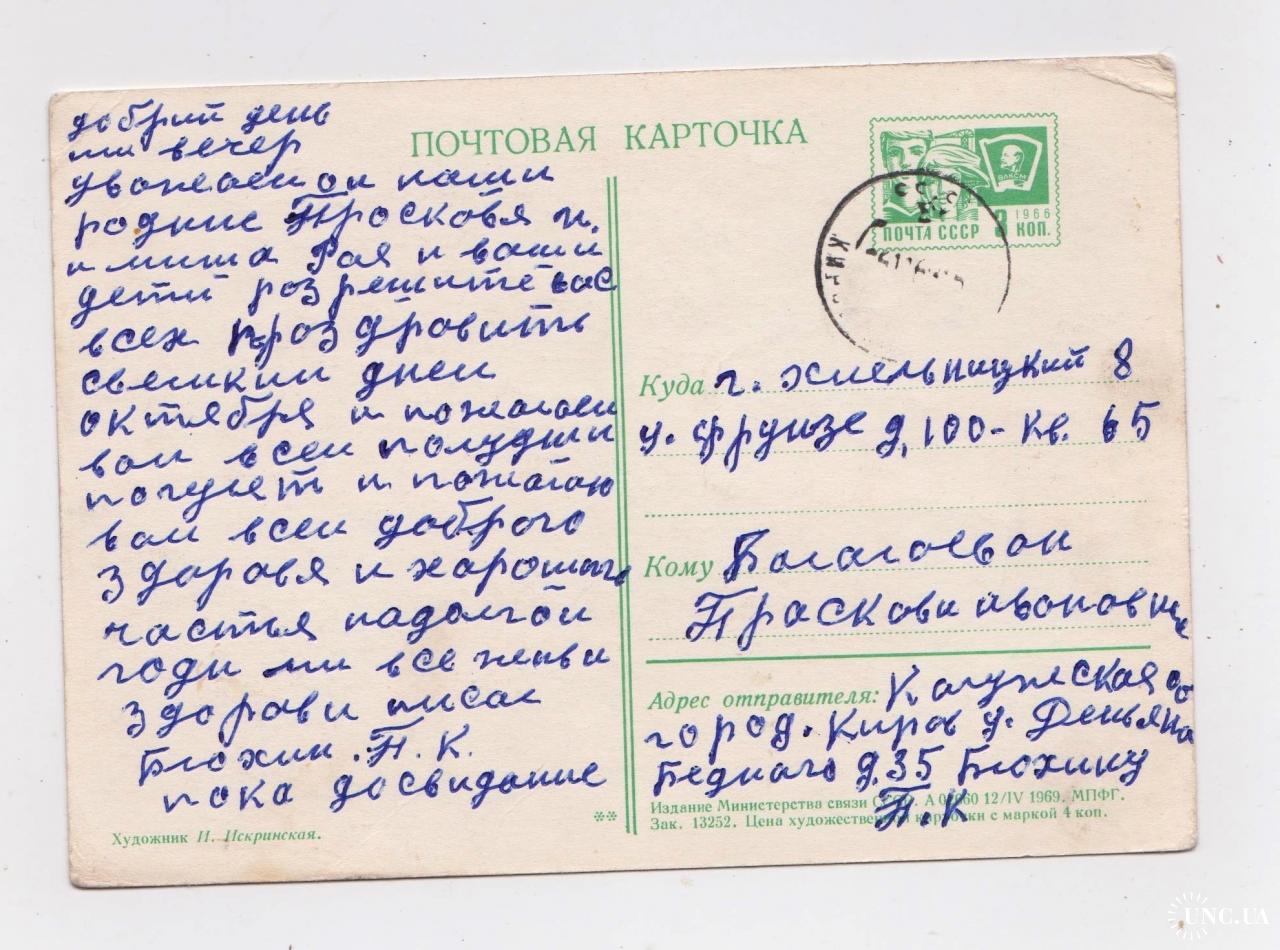 ПОЧТОВАЯ КАРТОЧКА
добрий день
ти вечер
уважаемои наши
родние Просковя и.
и миша Рая и ваши
дети розрешите вас
всех проздровить
свеликим днем
октября и пожелаем
вам всем
и пожелаю
вам всем доброго
здоровя и харошаго
частья надолгои
годи ми все живи
здорови писал
Блохин. П. К.
пока досвидание
Художник И. Искринская.
**
ВЛКСМ
1966
ПОЧТА СССР 3 КОП.
СССР
КИРО
Куда г. хмельницкий 8
у. фрунзе д, 100 - кв. 65
Кому
Прасковии
Адрес отправителя: Калужская об
город. Киров у. Демьяна
Бедного д. 35 Блохину
П. К
Издание Министерства связи СССР. А 02660 12/IV 1969. МПФГ.
Зак. 13252. Цена художественной карточки с маркой 4 коп.
UNC.UA